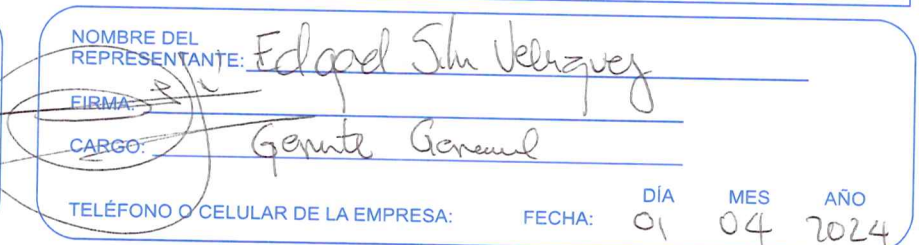 NOMBRE DEL
REPRESENTANTE: Edgard Silva Velazquez
FIRMA:
CARGO: Gerente General
DÍA MES AÑO
TELÉFONO O CELULAR DE LA EMPRESA: FECHA: 01 04 2024